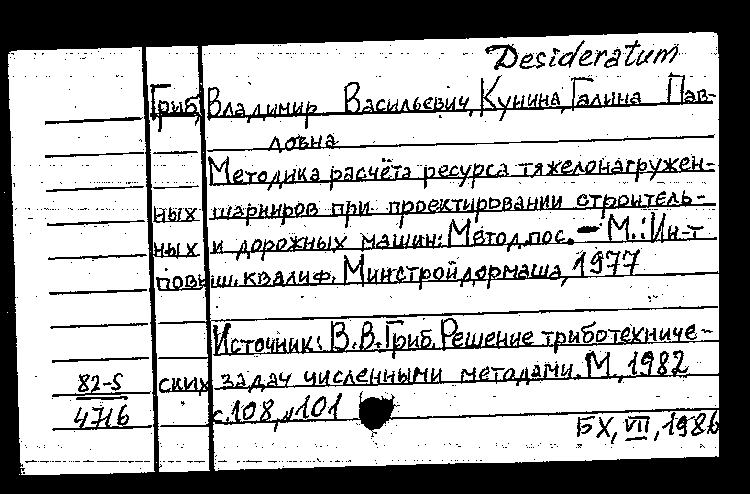 Desideratum
Гриб, Владимир Васильевич, Кунина, Галина Пав-
ловна
Методика расчёта ресурса тяжелонагружен-
ных шарниров при проектировании строитель-
ных и дорожных машин: Метод.пос. — М.: Ин-т
повыш. квалиф. Минстройдормаша, 1977
Источник: В.В. Гриб. Решение триботехниче-
82-5 ских задач численными методами. М., 1982
4716 с.108, №101
БХ, VII, 1986